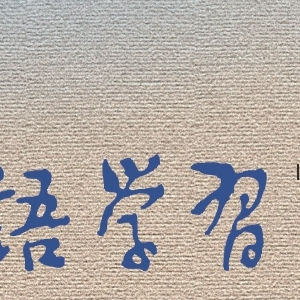 语学习